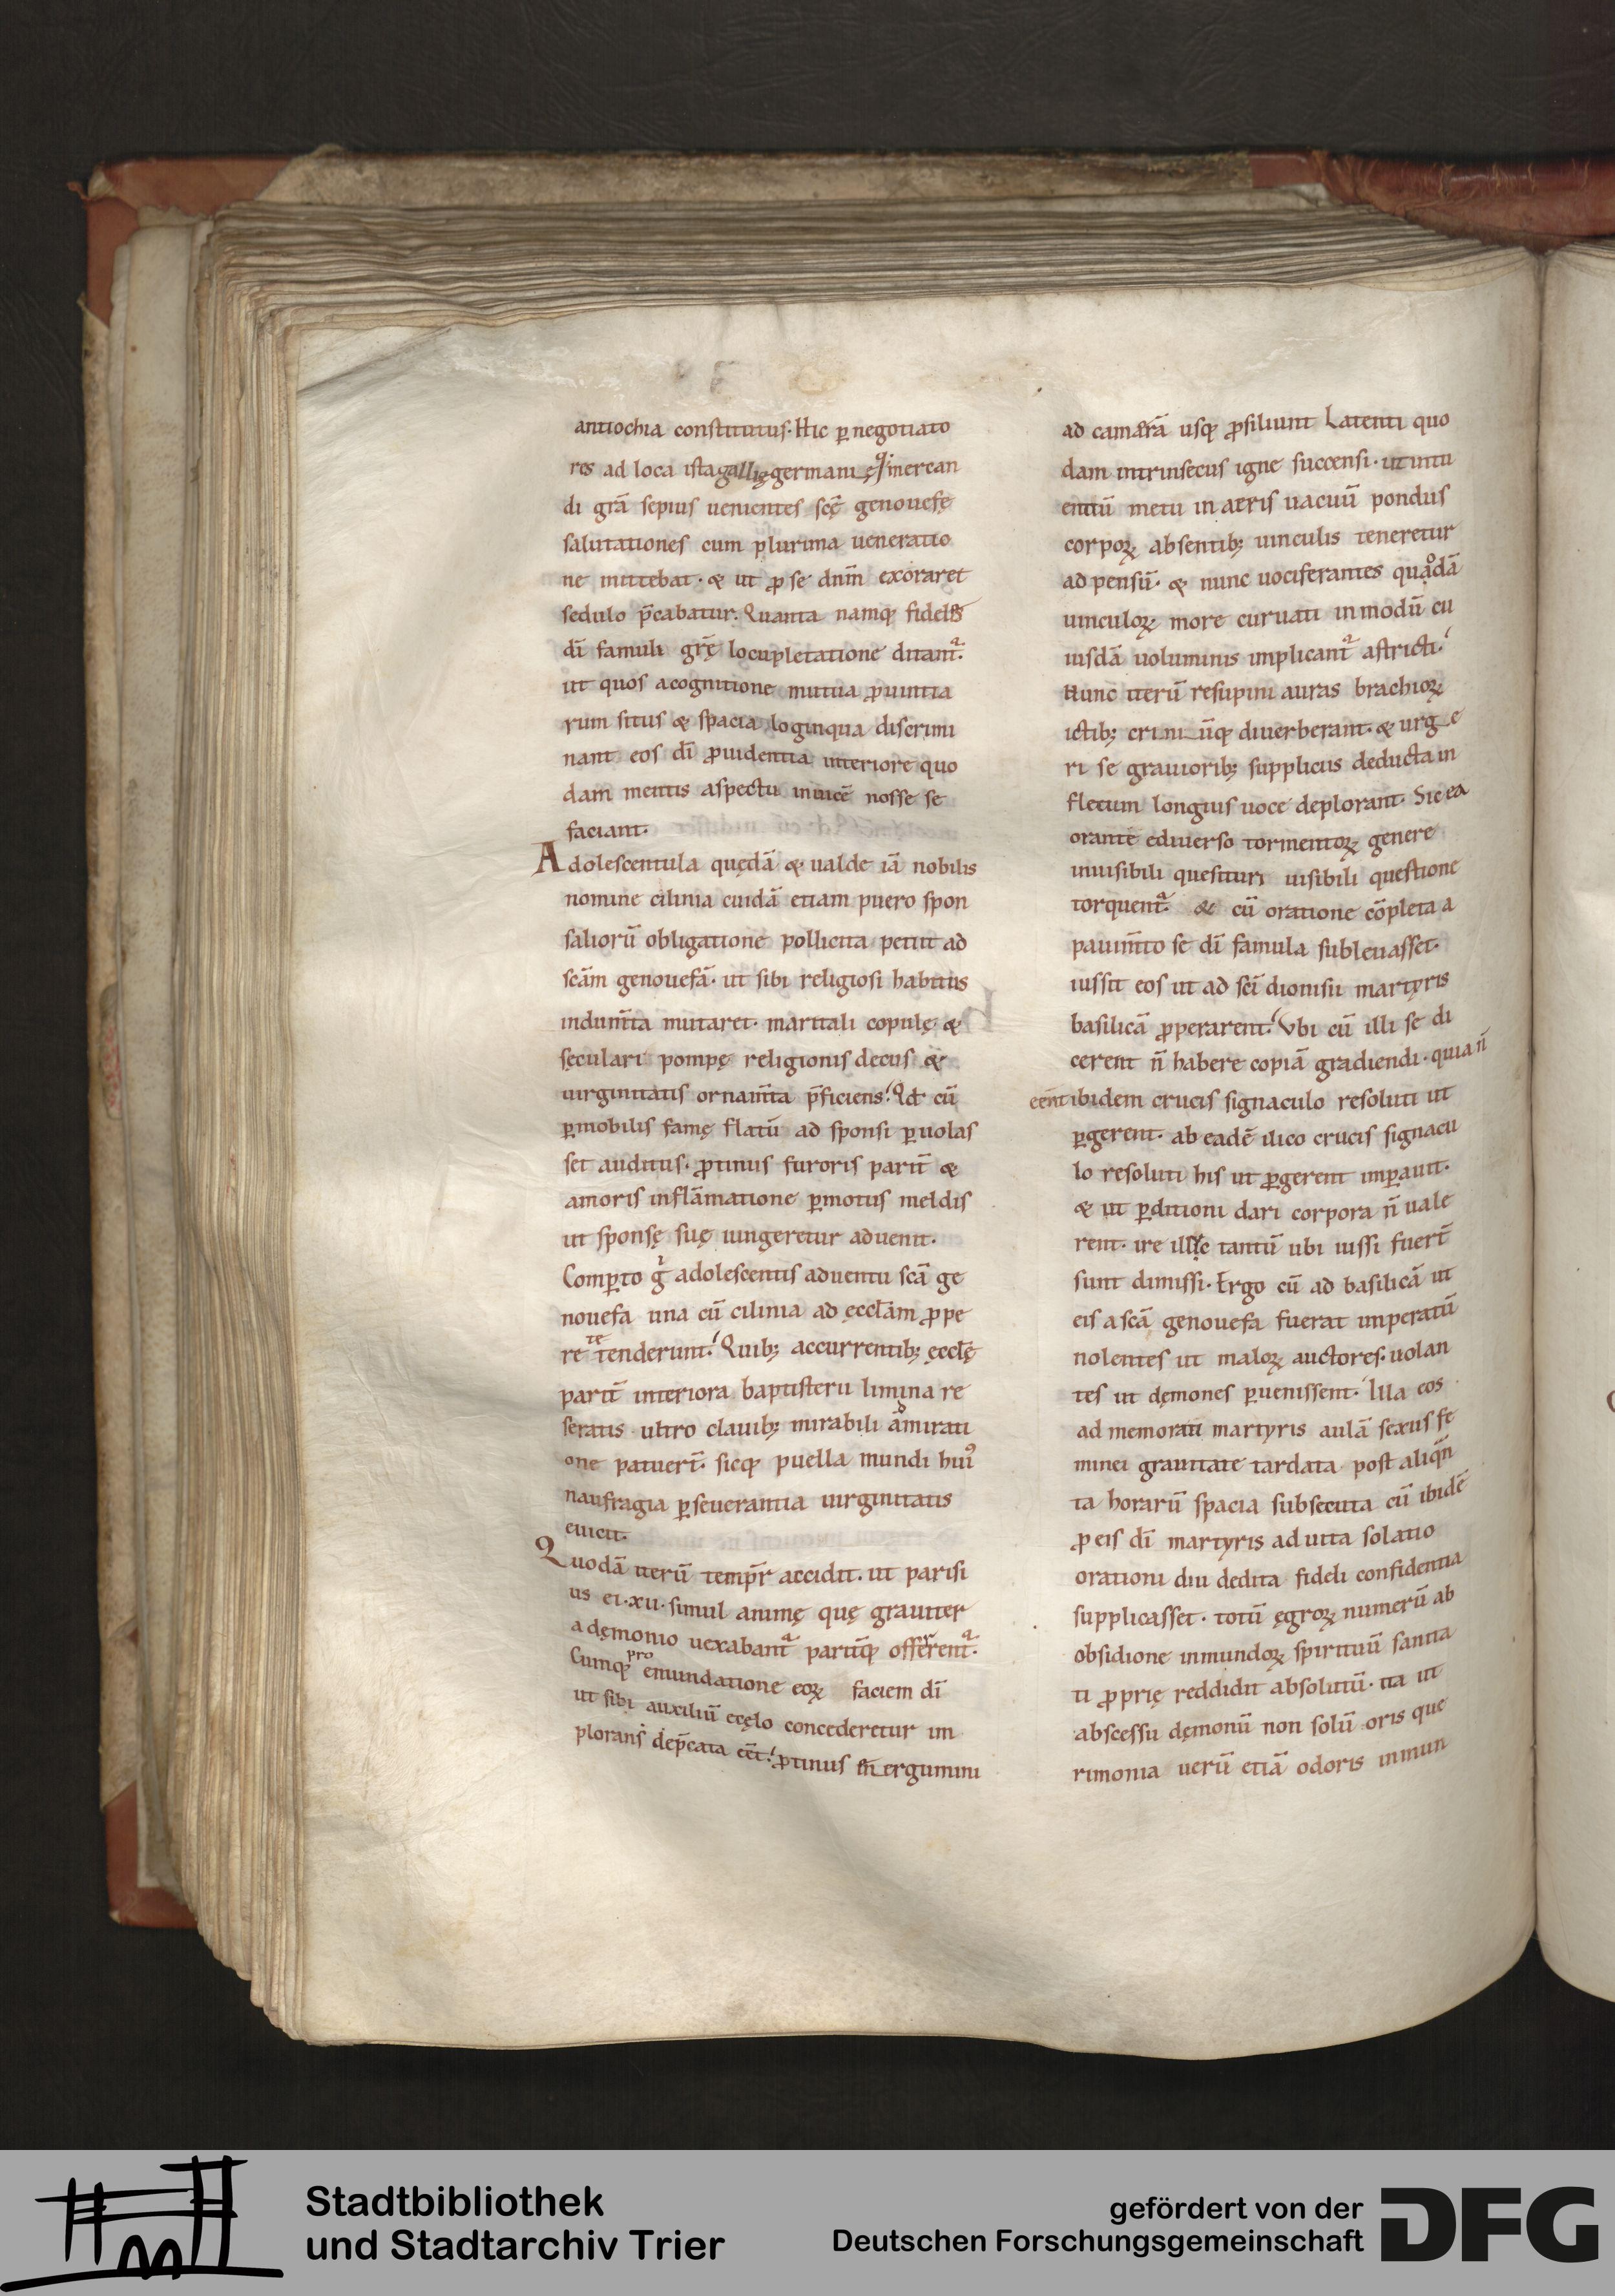 antiochia constitutus. Hic ꝑ negotiato
res ad loca ista gallię germani ę mercan
di grā sepius uenientes scē genouefę
salutationes cum plurima ueneratio
ne mittebat. & ut ꝓ se dnm̄ exoraret
sedulo p̄cabatur. Quanta namq; fideles
dī famuli grē locupletatione ditant᷑.
ut quos a cognitione mutua ꝓuintia
rum situs & spacia loginqua discrimi
nant eos dī ꝓuidentia interiore quo
dam mentis aspectu inuicē nosse se
faciant.
Adolescentula quędā & ualde iā nobilis
nomine cilinia cuidā etiam puero spon
saliorū obligatione pollicita petiit ad
scām genouefā. ut sibi religiosi habitus
indum̄ta mutaret. maritali copulę &
seculari pompę religionis decus &
uirginitatis ornam̄ta p̄ficiens. Qd cū
ꝑmobilis famę flatū ad sponsi ꝑuolas
set auditus. ꝓtinus furoris parit̄ &
amoris inflāmatione ꝑmotus meldis
ut sponsę suę iungeretur aduenit.
Comꝑto gͥ adolescentis aduentu scā ge
nouefa una cū cilinia ad eccłam ꝓpe
re te tenderunt. Quib; accurrentib; ęcclę
parit̄ interiora baptisterii limina re
seratis ultro clauib; mirabili āmirati
one patuer̄t. sicq; puella mundi hui᷒
naufragia ꝑseuerantia uirginitatis
euicit.
Quodā iterū temp̄r accidit. ut parisi
us ei. xii. simul animę quę grauiter
a dęmonio uexabant᷑ parit̄q; offerrent᷑.
Cumq; pro emundatione eoꝝ faciem dī
ut sibi auxiliū ecęlo concederetur im
plorans dep̄cata eēt. ꝓtinus en̄ergumini
ad camerā usq; ꝓsiliunt Latenti quo
dam intrinsecus igne succensi. ut intu
entiū metu in aeris uacuū pondus
corpoꝝ absentib; uinculis teneretur
ad pensū. & nunc uociferantes quodā
uinculoꝝ more curuati in modū cu
iusdā uoluminis implicant᷑ astricti.
Nunc iterū resupini auras brachioꝝ
ictib; criniūq; diuerberant. & urge
ri se grauiorib; suppliciis deducta in
fletum longius uoce deplorant. Sic ea
orante ediuerso tormentoꝝ genere
inuisibili quesituri uisibili questione
torquent᷑. & cū oratione cōpleta a
pauim̄to se dī famula subleuasset.
iussit eos ut ad scī dionisii martyris
basilicā ꝓperarent. Vbi cū illi se di
cerent n̄ habere copiā gradiendi. quia n̄
eēnt ibidem crucis signaculo resoluti ut
ꝑgerent. ab eadē ilico crucis signacu
lo resoluti his ut ꝑgerent imꝑauit.
& ut ꝑditioni dari corpora n̄ uale
rent. ire illic tantū ubi iussi fuer̄t
sunt dimissi. Ergo cū ad basilicā ut
eis a scā genouefa fuerat imperatū
nolentes ut maloꝝ auctores. uolan
tes ut dęmones ꝑuenissent. Illa eos
ad memorati martyris aulā sexus fe
minei grauitate tardata post aliqn̄
ta horarū spacia subsecuta cū ibidē
ꝓ eis dī martyris ad uita solatio
orationi diu dedita fideli confidentia
supplicasset. totū ęgroꝝ numerū ab
obsidione inmundoꝝ spirituū sanita
ti ꝓprię reddidit absolutū. ita ut
abscessu dęmonū non solū oris que
rimonia uerū etiā odoris inmun
Stadtbibliothek
und Stadtarchiv Trier
gefördert von der
Deutschen Forschungsgemeinschaft
DFG